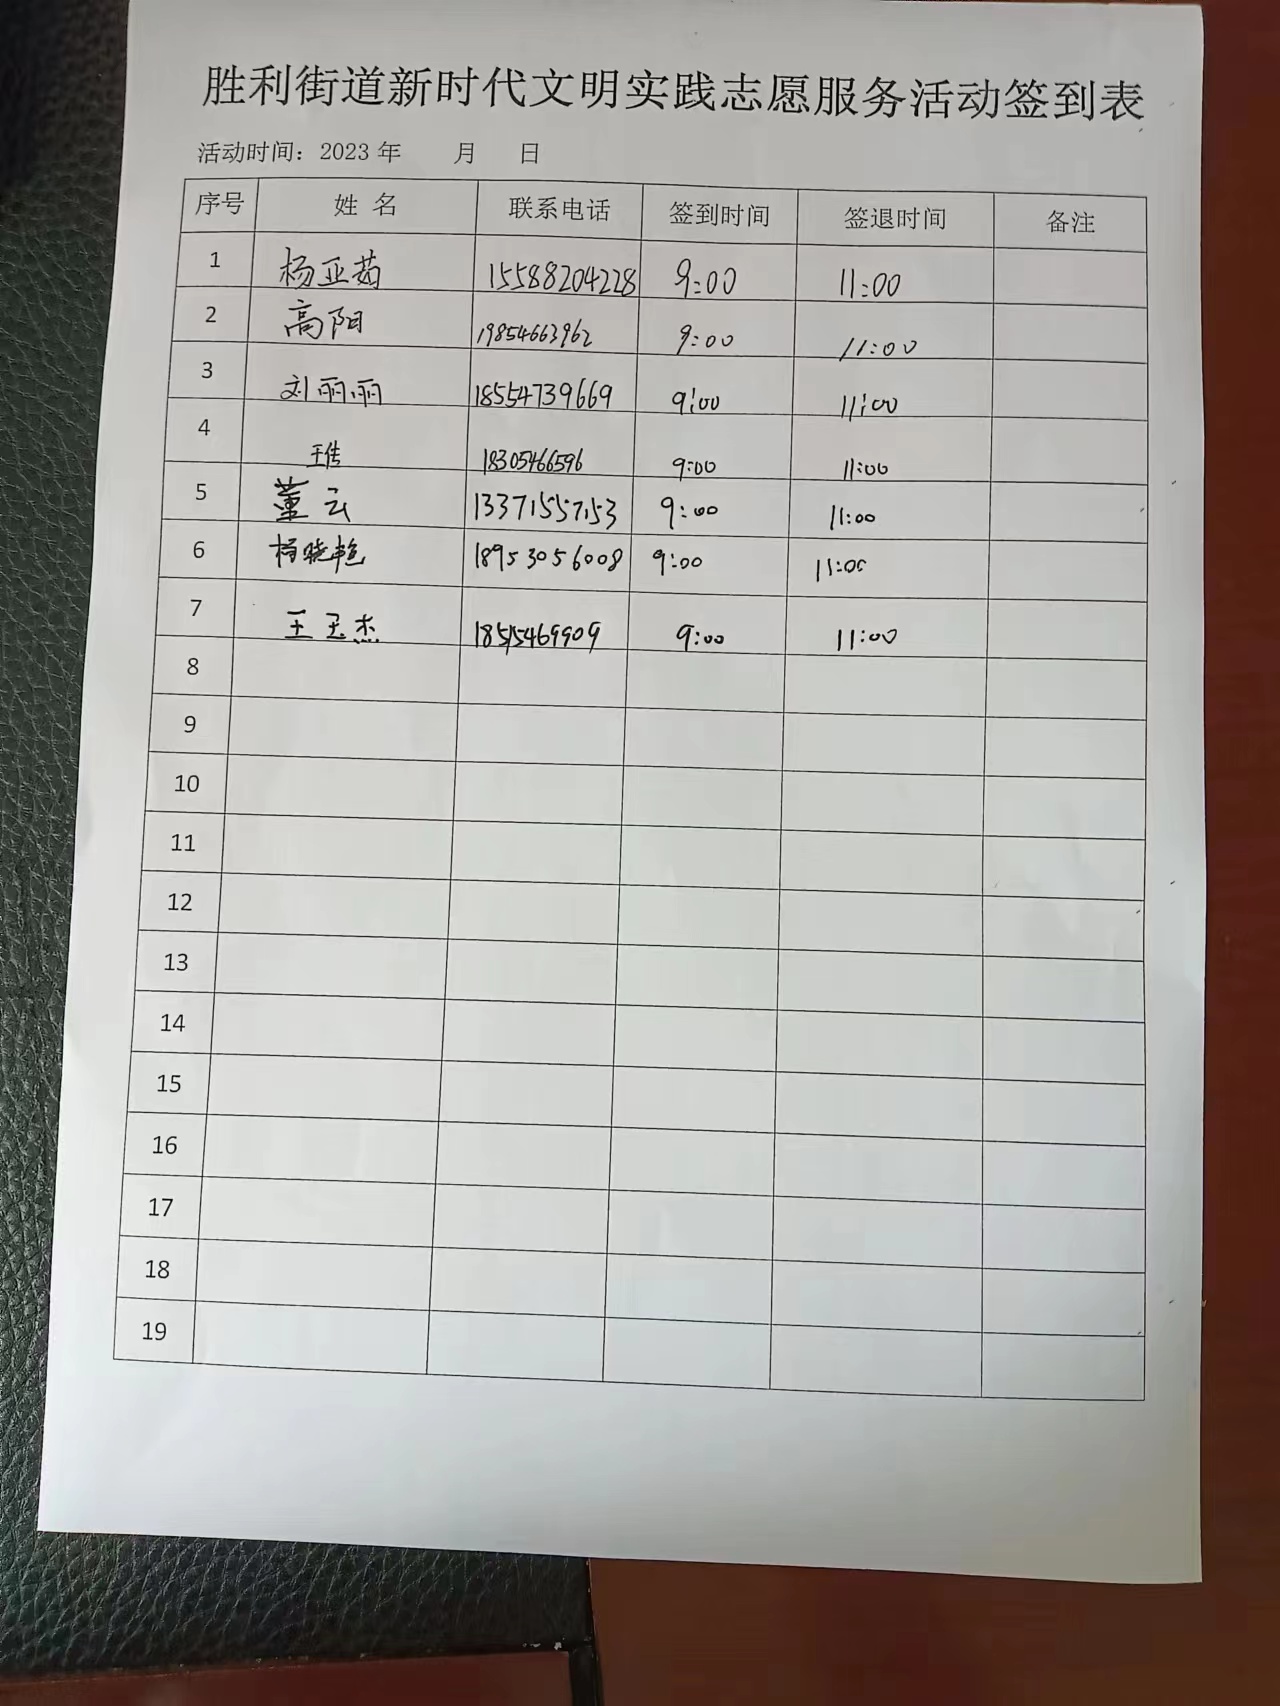 胜利街道新时代文明实践志愿服务活动签到表
活动时间：2023 年 月 日
序号 姓 名 联系电话 签到时间 签退时间 备注
1 杨亚茹 15588204228 9:00 11:00
2 高阳 19854663962 9:00 11:00
3 刘丽丽 18554739669 9:00 11:00
4 18305466596 9:00 11:00
5 董云 13371557153 9:00 11:00
6 杨晓艳 18953056008 9:00 11:00
7 王玉杰 18515469909 9:00 11:00
8
9
10
11
12
13
14
15
16
17
18
19